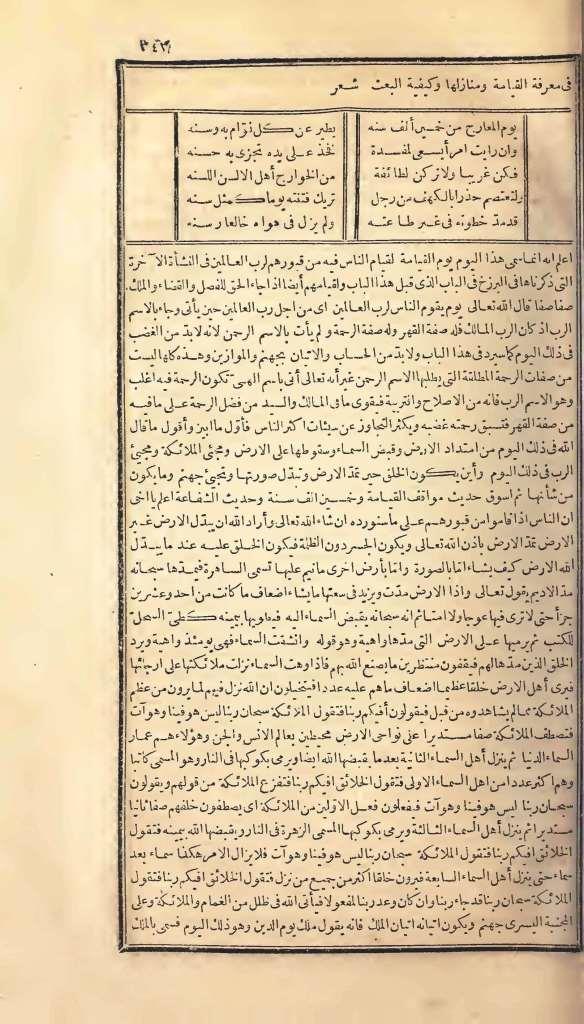 ٣٤٣
فى معرفة القيامة ومنازلها وكيفية البعث شعر
يوم المعارج من خمسين ألف سنه يطير عن كل نوّام به وسنه
وان رأيت امرأ يسعى لمفسدة فخذ على يده تجزى به حسنه
فكن غريبا ولا تركن لطائفة من الخوارج أهل الالسن اللسنه
ولتعتصم حذرا بالكهف من رجل تريك فتنته يوما كمثل سنه
قد مدّ خطوته فى غير طاعته ولم يزل فى هواه خالعا رسنه
اعلم انه انما سمى هذا اليوم يوم القيامة لقيام الناس فيه من قبورهم لرب العالمين فى النشأة الآخرة
التى ذكرناها فى البرزخ فى الباب الذى قبل هذا الباب ولقيامهم أيضا اذا جاء الحق للفصل والقضاء والملك
صفا صفا قال الله تعالى يوم يقوم الناس لرب العالمين اى من اجل رب العالمين حين يأتى وجاء بالاسم
الرب اذ كان الرب المالك فله صفة القهر وله صفة الرحمة ولم يأت بالاسم الرحمن لانه لابد من الغضب
فى ذلك اليوم كما سيرد فى هذا الباب ولابد من الحساب والاتيان بجهنم والموازين وهذه كلها ليست
من صفات الرحمة المطلقة التى يطلبها الاسم الرحمن غير أنه تعالى أتى باسم الهى تكون الرحمة فيه اغلب
وهو الاسم الرب فانه من الاصلاح والتربية فيقوى ما فى المالك والسيد من فضل الرحمة على ما فيه
من صفة القهر فتسبق رحمته غضبه ويكثر التجاوز عن سيئات اكثر الناس فأول ما ابين وأقول ما قال
الله فى ذلك اليوم من امتداد الارض وقبض السماء وسقوطها على الارض ومجئ الملائكة ومجئ
الرب فى ذلك اليوم وأين يكون الخلق حين تمدّ الارض وتبدّل صورتها وتجئ جهنم وما يكون
من شأنها ثم اسوق حديث مواقف القيامة وخمسين الف سنة وحديث الشفاعة اعلم يا اخى
ان الناس اذا قاموا من قبورهم على ما سنورده ان شاء الله تعالى وأراد الله ان يبدّل الارض غير
الارض تمدّ الارض باذن الله تعالى ويكون الجسر دون الظلمة فيكون الخلق عليه عند ما يبدّل
الله الارض كيف يشاء امّا بالصورة وامّا بأرض اخرى مانيم عليها تسمى الساهرة فيمدّها سبحانه
مدّ الاديم يقول تعالى واذا الارض مدّت ويزيد فى سعتها ما يشاء اضعاف ما كانت من احد وعشرين
جزأ حتى لا ترى فيها عوجا ولا امتا ثم انه سبحانه يقبض السماء اليه فيطويها بيمينه كطىّ السجلّ
للكتب ثم يرميها على الارض التى مدّها واهية وهو قوله وانشقت السماء فهى يومئذ واهية ويرد
الخلق الذين مدّها لهم فيقفون منتظرين ما يصنع الله بهم فاذا وهت السماء نزلت ملائكتها على ارجائها
فيرى أهل الارض خلقا عظيما اضعاف ما هم عليه عددا فيتخيلون ان الله نزل فيهم لما يرون من عظم
الملائكة مما لم يشاهدوه من قبل فيقولون أفيكم ربنا فتقول الملائكة سبحان ربنا ليس هو فينا وهو آت
فتصطف الملائكة صفا مستديرا على نواحى الارض محيطين بعالم الانس والجن وهؤلاء هم عمار
السماء الدنيا ثم ينزل أهل السماء الثانية بعد ما يقبضها الله ايضا ويرمى بكوكبها فى النار وهو المسمى كاتبا
وهم اكثر عددا من اهل السماء الاولى فتقول الخلائق افيكم ربنا فتفزع الملائكة من قولهم ويقولون
سبحان ربنا ليس هو فينا وهو آت فيفعلون فعل الاولين من الملائكة اى يصطفون خلفهم صفا ثانيا
مستديرا ثم ينزل أهل السماء الثالثة ويرمى بكوكبها المسمى الزهرة فى النار ويقبضها الله بيمينه فتقول
الخلائق افيكم ربنا فتقول الملائكة سبحان ربنا ليس هو فينا وهو آت فلا يزال الامر هكذا سماء بعد
سماء حتى ينزل أهل السماء السابعة فيرون خلقا اكثر من جميع من نزل فتقول الخلائق افيكم ربنا فتقول
الملائكة سبحان ربنا قد جاء ربنا وان كان وعد ربنا لمفعولا فيأتى الله فى ظلل من الغمام والملائكة وعلى
المجنبة اليسرى جهنم ويكون اتيانه اتيان الملك فانه يقول ملك يوم الدين وهو ذلك اليوم فسمى بالملك